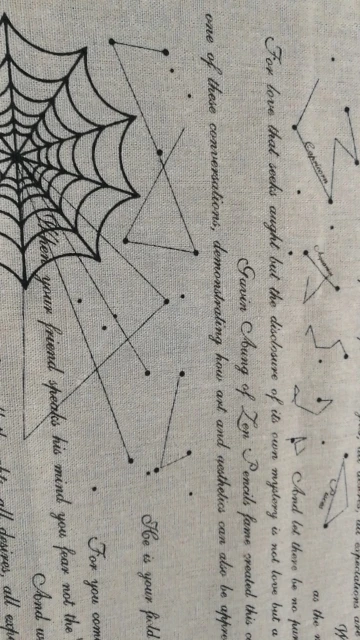 as the
Capricorn
And let there be no pur
For love that seeks aught but the disclosure of its own mystery is not love but a
Gavin Aung of Zen Pencils fame created this
one of these conversations, demonstrating how art and aesthetics can also be appre
He is your field
For you come
When your friend speaks his mind you fear not the
And w
all desires, all exp